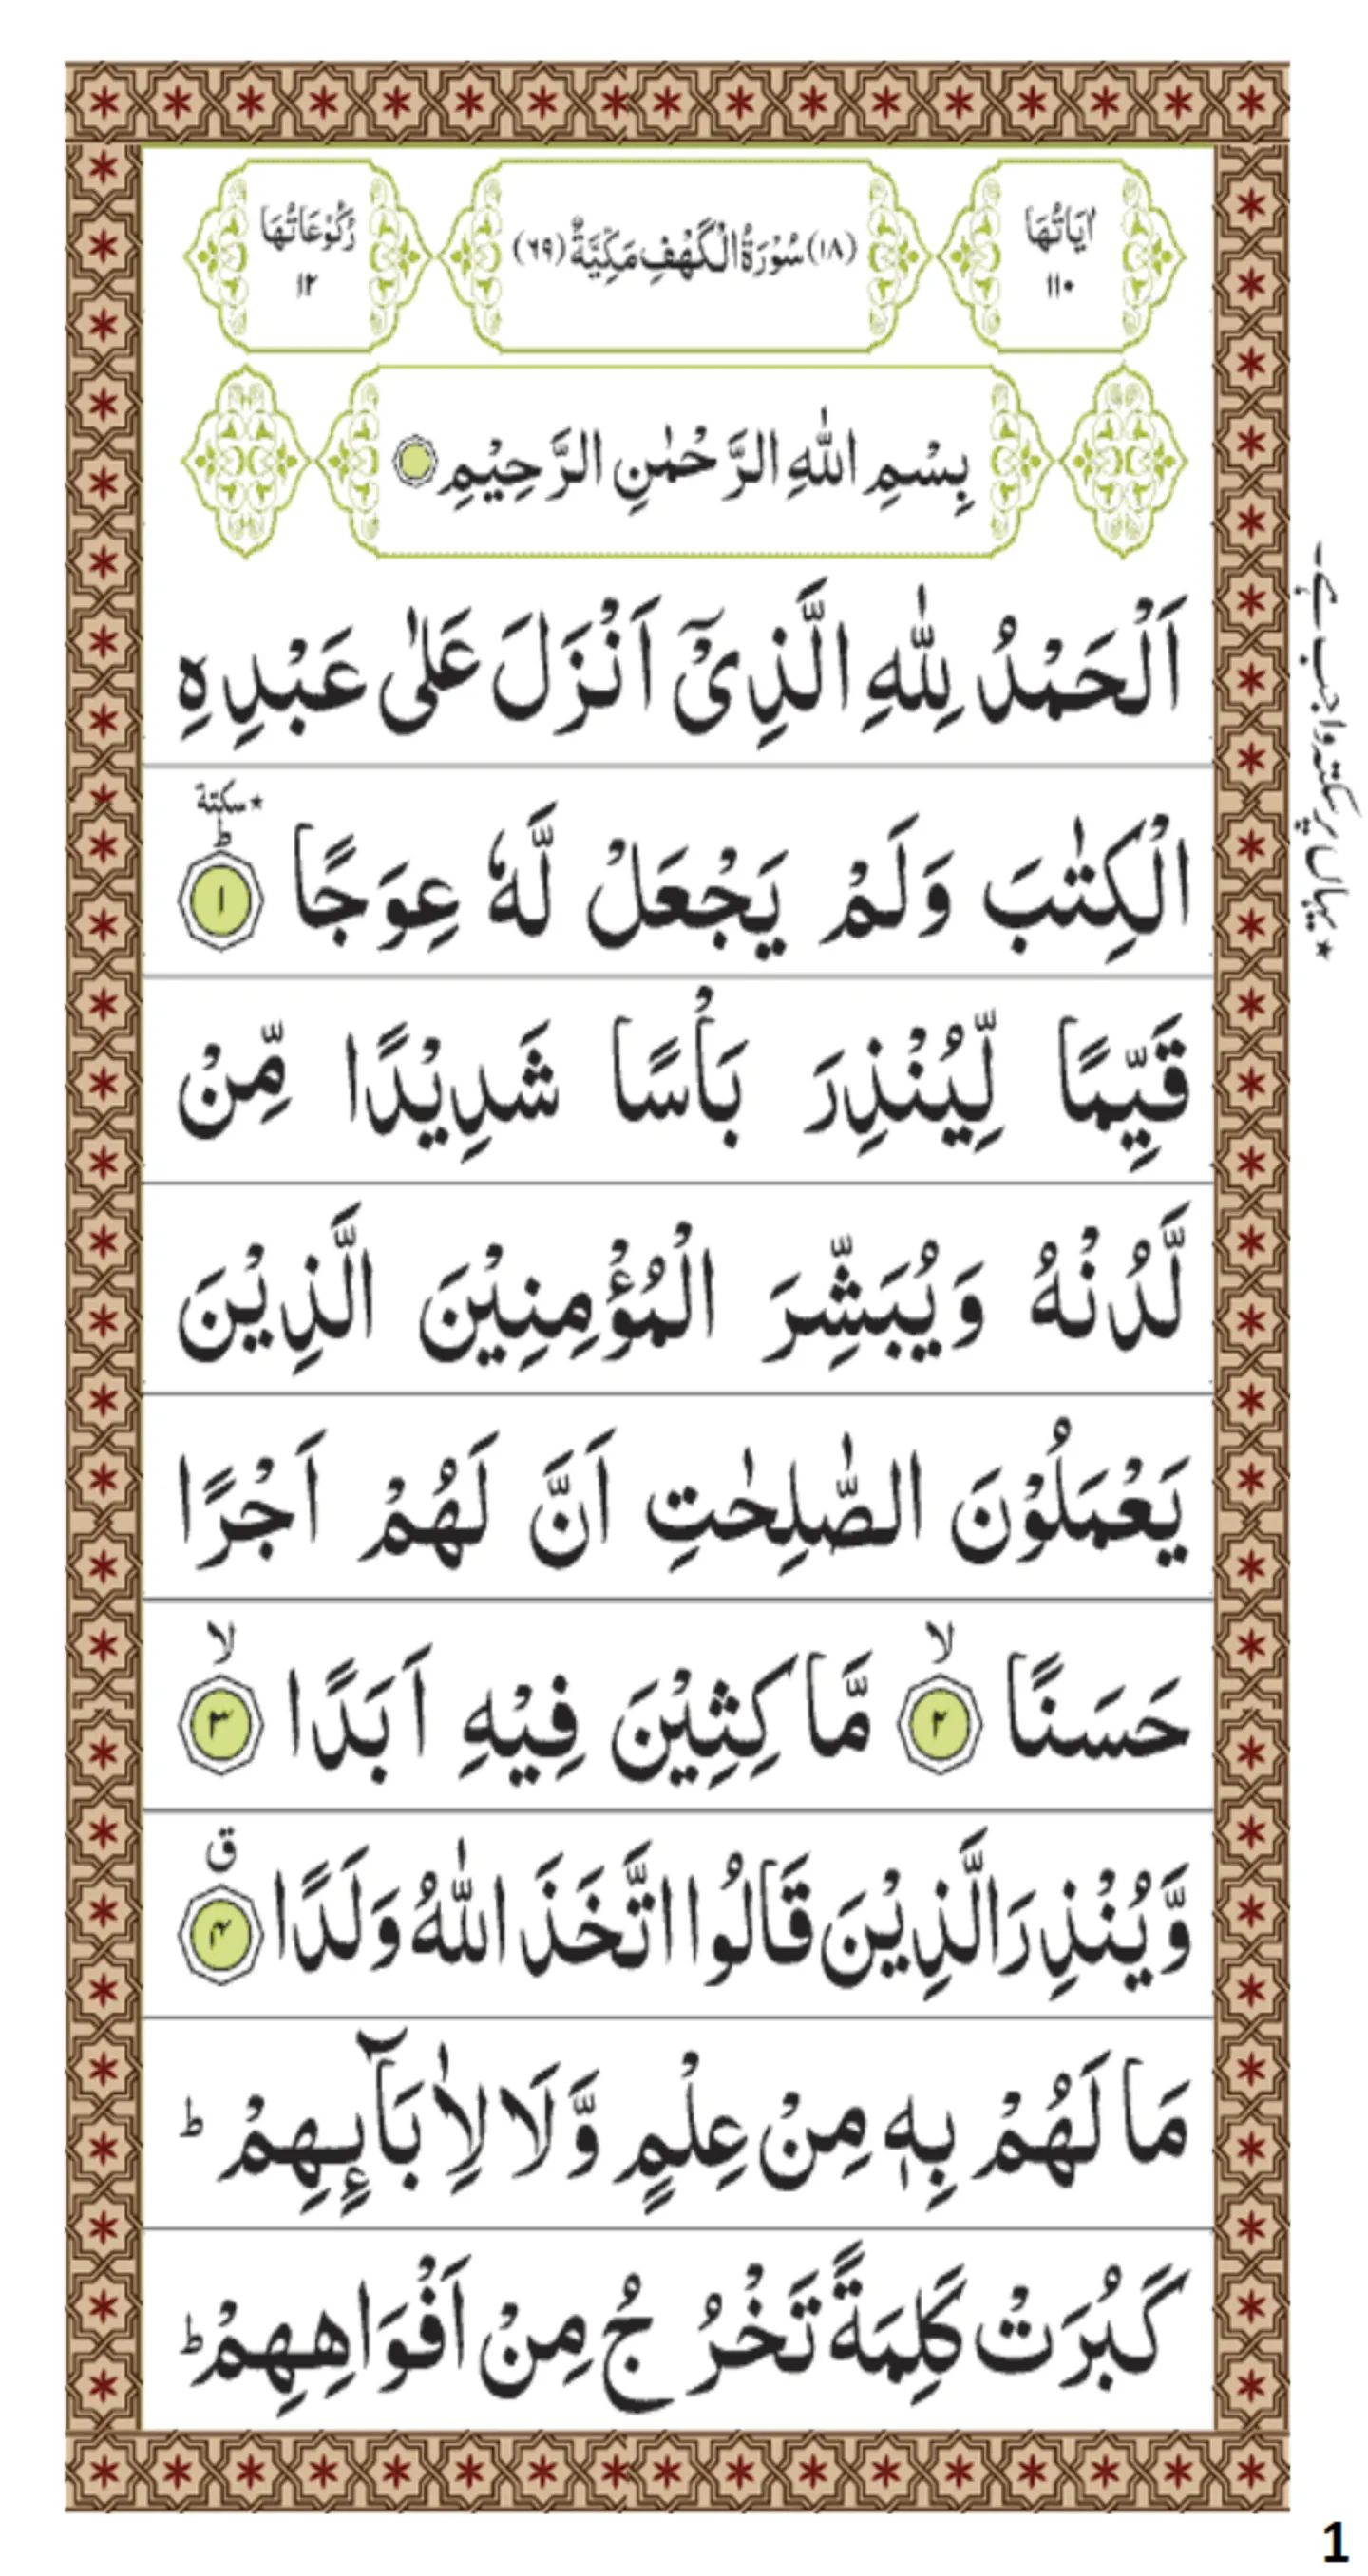 اٰيَاتُهَا ١١٠
(١٨) سُوْرَةُ الْكَهْفِ مَكِّيَّةٌ (٦٩)
رُكُوْعَاتُهَا ١٢
بِسْمِ اللّٰهِ الرَّحْمٰنِ الرَّحِيْمِ
اَلْحَمْدُ لِلّٰهِ الَّذِىْۤ اَنْزَلَ عَلٰى عَبْدِهِ
الْكِتٰبَ وَلَمْ يَجْعَلْ لَّهٗ عِوَجًا ١ ؕ ٭سكتة
قَيِّمًا لِّيُنْذِرَ بَاْسًا شَدِيْدًا مِّنْ
لَّدُنْهُ وَيُبَشِّرَ الْمُؤْمِنِيْنَ الَّذِيْنَ
يَعْمَلُوْنَ الصّٰلِحٰتِ اَنَّ لَهُمْ اَجْرًا
حَسَنًا ٢ ۙ مَّاكِثِيْنَ فِيْهِ اَبَدًا ٣ ۙ
وَّيُنْذِرَ الَّذِيْنَ قَالُوا اتَّخَذَ اللّٰهُ وَلَدًا ۴ ق
مَا لَهُمْ بِهٖ مِنْ عِلْمٍ وَّلَا لِاٰبَآىِٕهِمْ ؕ
كَبُرَتْ كَلِمَةً تَخْرُجُ مِنْ اَفْوَاهِهِمْ ؕ
٭ یہاں پر سکتہ واجب ہے۔
1